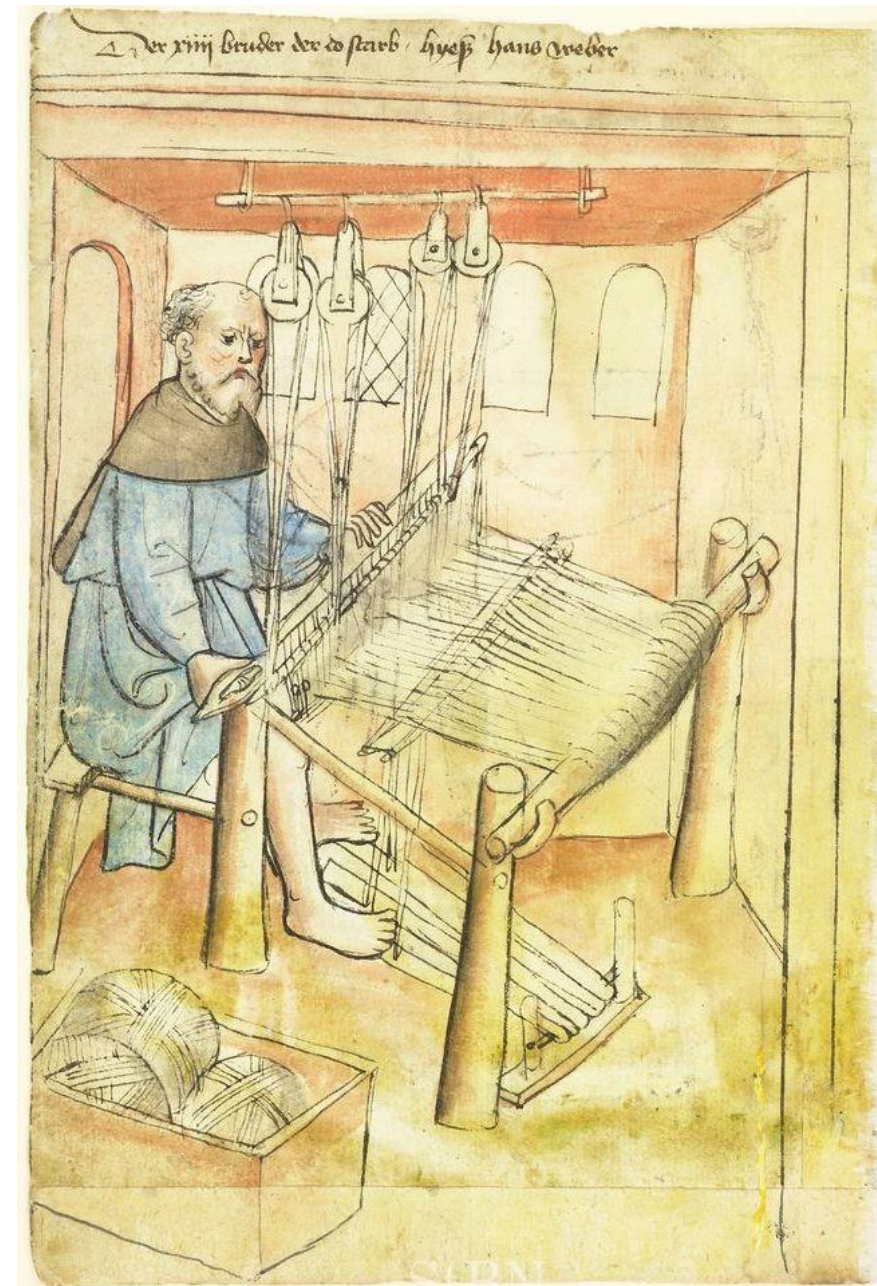 Der xiiij bruder der do starb · hyeß hans weber
SIBN